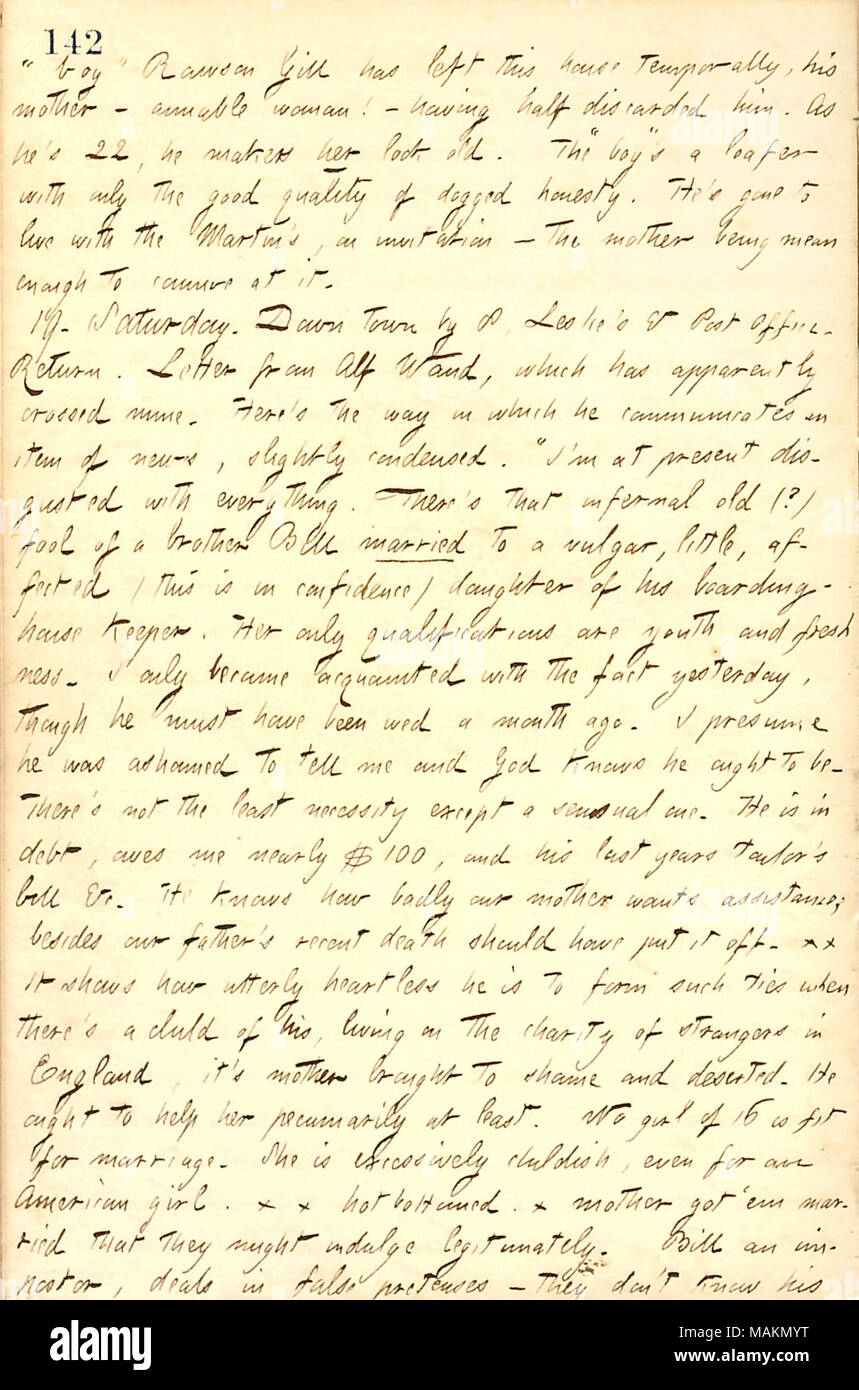 142
"boy" Rawson Gill has left this house temporally, his
mother - amiable woman! - having half discarded him. As
he's 22, he makes her look old. The "boy"'s a loafer
with only the good quality of dogged honesty. He's gone to
live with the Martin's, on invitation - the mother being mean
enough to connive at it.
19. Saturday. Down town by 8, Leslie's & Post Office.
Return. Letter from Alf Waud, which has apparently
crossed mine. Here's the way in which he communicates an
item of news, slightly condensed. "I'm at present dis-
gusted with everything. There's that infernal old (?)
fool of a brother Bill married to a vulgar, little, af-
fected (this is in confidence) daughter of his boarding-
house keeper. Her only qualifications are youth and fresh
ness. I only became acquainted with the fact yesterday,
though he must have been wed a month ago. I presume
he was ashamed to tell me and God knows he ought to be.
There's not the least necessity except a sensual one. He is in
debt, owes me nearly $100, and his last years tailor's
bill &c. He knows how badly our mother wants assistance;
besides our father's recent death should have put it off. x x
It shows how utterly heartless he is to form such ties when
there's a child of his, living on the charity of strangers in
England, it's mother brought to shame and deserted. He
ought to help her pecuniarily at least. No girl of 16 is fit
for marriage. She is excessively childish, even for an
American girl. x x hot bottomed. x mother got 'em mar-
ried that they might indulge legitimately. Bill an im-
postor, deals in false pretenses - they don't know his
alamy
Image ID: MAKMYT
www.alamy.com